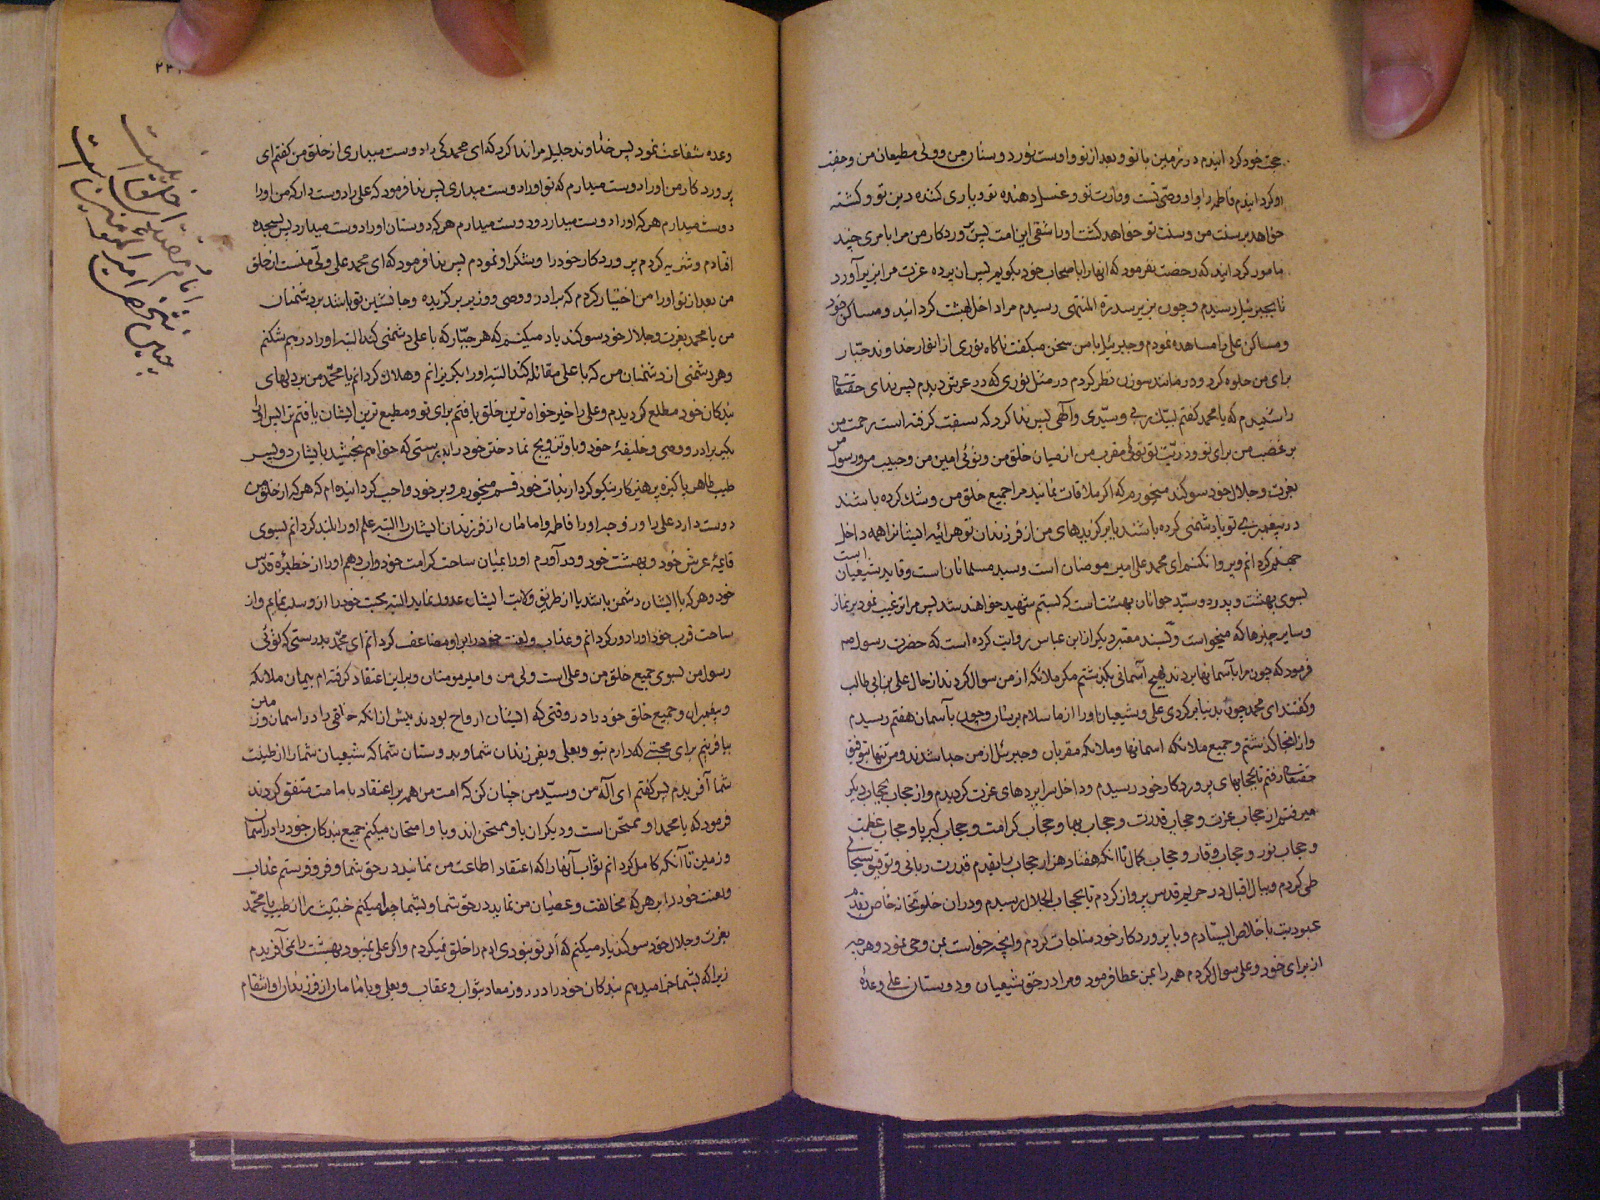 حجت خود گردانیدم در زمین با تو و بعد از تو و اوست نور دوستان من و ولی مطیعان من و جفت
او گردانیدم فاطمه را و او وصی تست و وارث تو و غسل دهنده تو و یاری کننده دین تو و کشته
خواهد بر سنت من و سنت تو خواهد کشت او را شقی این امت پس پروردکار من مرا بامری چند
مامور گردانید که رخصت نفرمود که آنها را باصحاب خود بگویم پس آن پرده عزت مرا بزیر آورد
تا بجبرئیل رسیدم و چون بزیر سدرة المنتهی رسیدم مرا داخل بهشت گردانید و مساکن خود
و مساکن علی را مشاهده نمودم و جبرئیل با من سخن میکفت ناکاه نوری از انوار خداوند جبار
برای من جلوه کرد و در مانند سوزن نظر کردم در مثل نوری که در عرش دیدم پس ندای حقتعالی
را شنیدم که یا محمد کفتم لبیک ربی و سیدی و الهی پس ندا کرد که سبقت کرفته است رحمت من
بر غضب من برای تو و ذریت تو توئی مقرب من از میان خلق من و توئی امین من و حبیب من و رسول من
بعزت و جلال خود سوکند میخورم که اکر ملاقات نمایند مرا جمیع خلق من و شک کرده باشند
در پیغمبری تو یا دشمنی کرده باشند با برکزیدهای من از فرزندان تو هر آینه ایشانرا همه داخل
جهنم گردانم و پروا نکنم ای محمد علی امیر مومنان است و سید مسلمانان است و قاید شیعیان است
بسوی بهشت و پدر دو سید جوانان بهشت است که بستم شهید خواهند شد پس مرا ترغیب نمود بر نماز
و سایر چیزها که میخواست و بسند معتبر دیکر از ابن عباس روایت کرده است که حضرت رسول ص
فرمود که چون مرا بآسمانها بردند بهیچ آسمانی نکذشتم مکر ملائکه از من سوال کردند از حال علی بن ابی طالب
و کفتند ای محمد چون بدنیا برکردی علی و شیعیان او را از ما سلام برسان و چون بآسمان هفتم رسیدم
و از آنجا کذشتم و جمیع ملائکه آسمانها و ملائکه مقربان و جبرئیل از من جدا شدند و من تنها بتوفیق
حقتعالی رفتم تا بحجابهای پروردکار خود رسیدم و داخل سراپردهای عزت کردیدم و از حجاب بحجاب دیکر
میرفتم از حجاب عزت و حجاب قدرت و حجاب بها و حجاب کرامت و حجاب کبریا و حجاب عظمت
و حجاب نور و حجاب وقار و حجاب کمال تا آنکه هفتاد هزار حجاب را بقدم قدرت ربانی و توفیق سبحانی
طی کردم و ببال اقبال در حریم قدس پرواز کردم تا بحجاب الجلال رسیدم و در آن خلوتخانه خاص بقدم
عبودیت با خلاص ایستادم و با پروردکار خود مناجات کردم و آنچه خواست بمن وحی نمود و هر چه
از برای خود و علی سوال کردم همه را بمن عطا فرمود و مرا در حق شیعیان و دوستان علی وعدهٔ
وعده شفاعت نمود پس خداوند جلیل مرا ندا کرد که ای محمد کی را دوست میداری از خلق من کفتم ای
پروردکار من او را دوست میدارم که تو او را دوست میداری پس ندا فرمود که علی را دوست دار که من او را
دوست میدارم هر که او را دوست میدارد و دوست میدارم هر که دوستان او را دوست میدارد پس بسجده
افتادم و تنزیه کردم پروردکار خود را و شکر او نمودم پس ندا فرمود که ای محمد علی ولی منست از خلق
من بعد از تو او را من اختیار کردم که برادر و وصی و وزیر برکزیده و جانشین تو باشد بر دشمنان
من یا محمد بعزت و جلال خود سوکند یاد میکنم که هر جباری که با علی دشمنی کند البته او را در هم شکنم
و هر دشمنی از دشمنان من که با علی مقاتله کند البته او را بکریزانم و هلاک کردانم یا محمد من بر دلهای
بندکان خود مطلع کردیدم و علی را خیر خواه ترین خلق یافتم برای تو و مطیع ترین ایشان یافتم ترا پس او را
بکیر برادر و وصی و خلیفهٔ خود و با او تزویج نما دختر خود را بدرستی که خواهم بخشید بایشان دو پسر
طیب طاهر پاکیزه پرهیزکار نیکوکردار بذات خود قسم میخورم و بر خود واجب کردانیده‌ام که هر که از خلق من
دوست دارد علی را و زوجه او را فاطمه و امامان از فرزندان ایشان را البته علم او را بلند کردانم بسوی
قایمهٔ عرش خود و بهشت خود و درآورم او را بمیان ساحت کرامت خود و آب دهم او را از حظیرهٔ قدس
خود و هر که با ایشان دشمن باشد یا از طریق ولایت ایشان عدول نماید البته محبت خود را از او سلب نمایم و از
ساحت قرب خود او را دور کردانم و عذاب و لعنت خود را بر او مضاعف کردانم ای محمد بدرستی که توئی
رسول من بسوی جمیع خلق من و علی است ولی من و امیر مومنان و بر این اعتقاد کرفته‌ام پیمان ملائکه
و پیغمبران و جمیع خلق خود را در وقتی که ایشان ارواح بودند پیش از آنکه خلقی را در آسمان و زمین
بیافرینم برای محبتی که دارم بتو و بعلی و بفرزندان شما و بدوستان شما که شیعیان شما را از طینت
شما آفریدم پس کفتم ای اله من و سید من چنان کن که امت من همه بر اعتقاد بامامت متفق کردند
فرمود که یا محمد او ممتحن است و دیکران باو ممتحن‌اند و باو امتحان میکنم جمیع بندکان خود را در آسمان
و زمین تا آنکه کامل کردانم ثواب آنها را که اعتقاد اطاعت من نمایند در حق شما و فرو فرستم عذاب
و لعنت خود را بر هر که مخالفت و عصیان من نماید در حق شما و بشما جدا میکنم خبیث را از طیب یا محمد
بعزت و جلال خود سوکند یاد میکنم که اگر تو نبودی آدم را خلق نمیکردم و اکر علی نمیبود بهشت را نمی‌آفریدم
زیرا که بشما جزا میدهم بندکان خود را در روز معاد بثواب و عقاب و بعلی و بامامان از فرزندان او انتقام